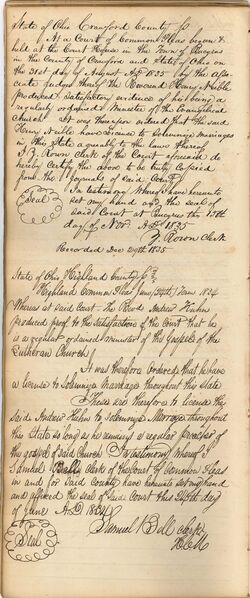 State of Ohio Crawford County ss
At a Court of Common Pleas began &
held at the Court House in the Town of Bucyrus
in the County of Crawford and State of Ohio on
the 31st day of August AD 1835 by the Asso
ciate judges thereof the Reverend Henry Kuhle
produced satisfactory evidence of his being a
regularly ordained Minister of the Evangelical
Church. It was therefore ordered that the said
Henry Kuhle have License to solemnize marriages
in this state agreeably to the laws thereof
I Z. Rowse Clerk of the Court aforesaid do
hereby certify the above to be truly copied
from the Journals of said Court
In testimony whereof I have hereunto
set my hand and the seal of
said Court at Bucyrus this 13th
day of Nov. AD 1835
Z Rowse Clerk
Seal
Recorded Dec 29th 1835
State of Ohio Highland County ss
Highland Common Pleas June 24th Term 1834
Whereas at said Court the Revd Andrew Kuhn
produced proof to the satisfaction of the Court that he
is a regular ordained minister of the Gospel of the
Lutheran Church
It was therefore ordered that he have
a license to Solemnize marriage throughout this State
These are therefore to license the
said Andrew Kuhn to solemnize Marriage throughout
this State so long as he remains a regular preacher of
the gospel of said Church In testimony whereof I
Samuel Bell Clerk of the Court of Common Pleas
in and for said County have hereunto set my hand
and affixed the seal of said Court this 24th day
of June AD 1834
Samuel Bell Clerk
Seal